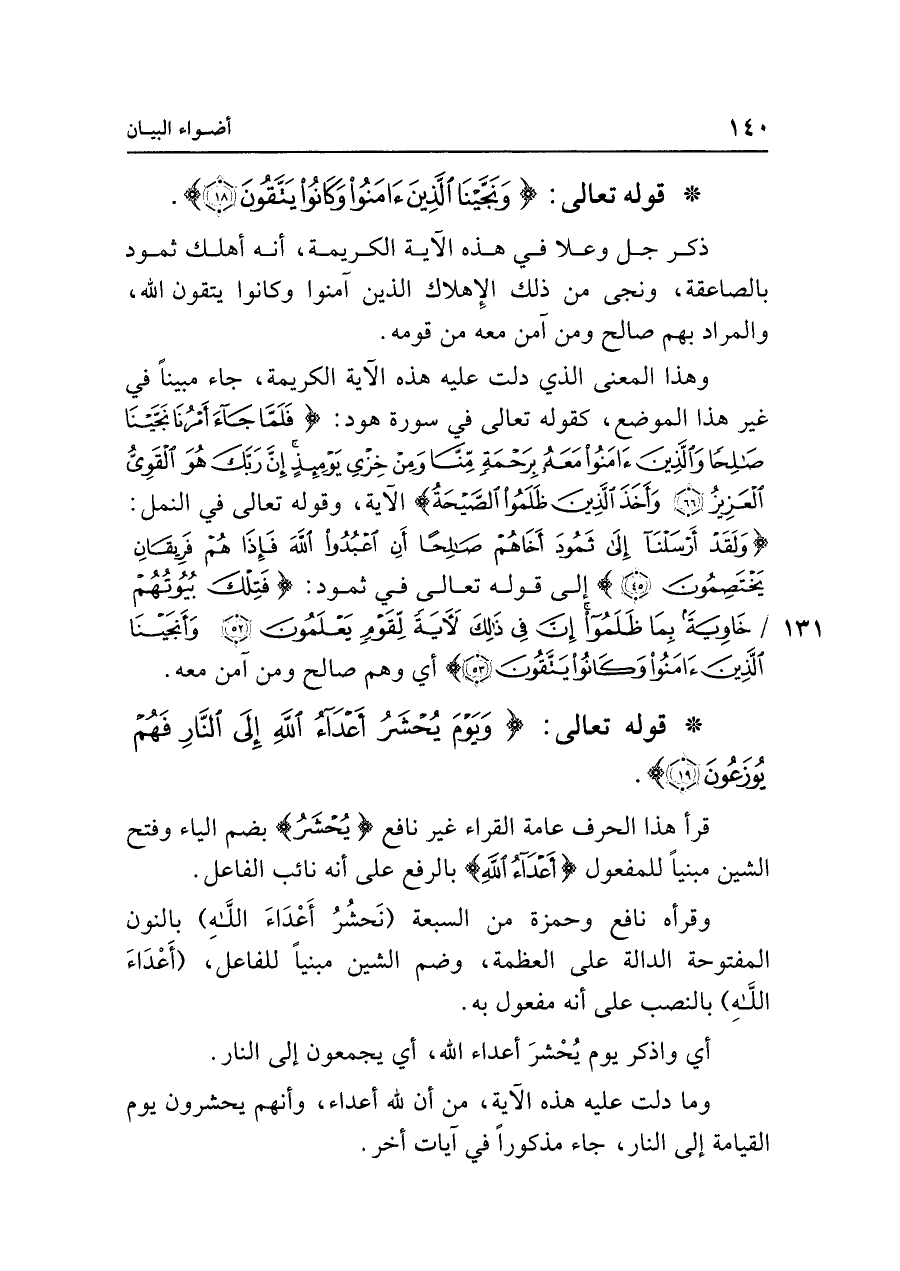 ١٤٠ أضواء البيان
* قوله تعالى: ﴿ وَنَجَّيْنَا ٱلَّذِينَ ءَامَنُوا۟ وَكَانُوا۟ يَتَّقُونَ ١٨﴾.
ذكر جل وعلا في هذه الآية الكريمة، أنه أهلك ثمود
بالصاعقة، ونجى من ذلك الإهلاك الذين آمنوا وكانوا يتقون الله،
والمراد بهم صالح ومن آمن معه من قومه.
وهذا المعنى الذي دلت عليه هذه الآية الكريمة، جاء مبيناً في
غير هذا الموضع، كقوله تعالى في سورة هود: ﴿ فَلَمَّا جَآءَ أَمْرُنَا نَجَّيْنَا
صَٰلِحًا وَٱلَّذِينَ ءَامَنُوا۟ مَعَهُۥ بِرَحْمَةٍ مِّنَّا وَمِنْ خِزْىِ يَوْمِئِذٍ ۗ إِنَّ رَبَّكَ هُوَ ٱلْقَوِىُّ
ٱلْعَزِيزُ ٦٦ وَأَخَذَ ٱلَّذِينَ ظَلَمُوا۟ ٱلصَّيْحَةُ﴾ الآية، وقوله تعالى في النمل:
﴿ وَلَقَدْ أَرْسَلْنَآ إِلَىٰ ثَمُودَ أَخَاهُمْ صَٰلِحًا أَنِ ٱعْبُدُوا۟ ٱللَّهَ فَإِذَا هُمْ فَرِيقَانِ
يَخْتَصِمُونَ ٤٥ ﴾ إلى قوله تعالى في ثمود: ﴿ فَتِلْكَ بُيُوتُهُمْ
١٣١ / خَاوِيَةًۢ بِمَا ظَلَمُوٓا۟ ۗ إِنَّ فِى ذَٰلِكَ لَءَايَةً لِّقَوْمٍ يَعْلَمُونَ ٥٢ وَأَنجَيْنَا
ٱلَّذِينَ ءَامَنُوا۟ وَكَانُوا۟ يَتَّقُونَ ٥٣﴾ أي وهم صالح ومن آمن معه.
* قوله تعالى: ﴿ وَيَوْمَ يُحْشَرُ أَعْدَآءُ ٱللَّهِ إِلَى ٱلنَّارِ فَهُمْ
يُوزَعُونَ ١٩﴾.
قرأ هذا الحرف عامة القراء غير نافع ﴿ يُحْشَرُ﴾ بضم الياء وفتح
الشين مبنياً للمفعول ﴿أَعْدَآءُ ٱللَّهِ﴾ بالرفع على أنه نائب الفاعل.
وقرأه نافع وحمزة من السبعة (نَحشُرُ أَعْدَاءَ اللَّهِ) بالنون
المفتوحة الدالة على العظمة، وضم الشين مبنياً للفاعل، (أَعْدَاءَ
اللَّهِ) بالنصب على أنه مفعول به.
أي واذكر يوم يُحْشرَ أعداء الله، أي يجمعون إلى النار.
وما دلت عليه هذه الآية، من أن لله أعداء، وأنهم يحشرون يوم
القيامة إلى النار، جاء مذكوراً في آيات أخر.